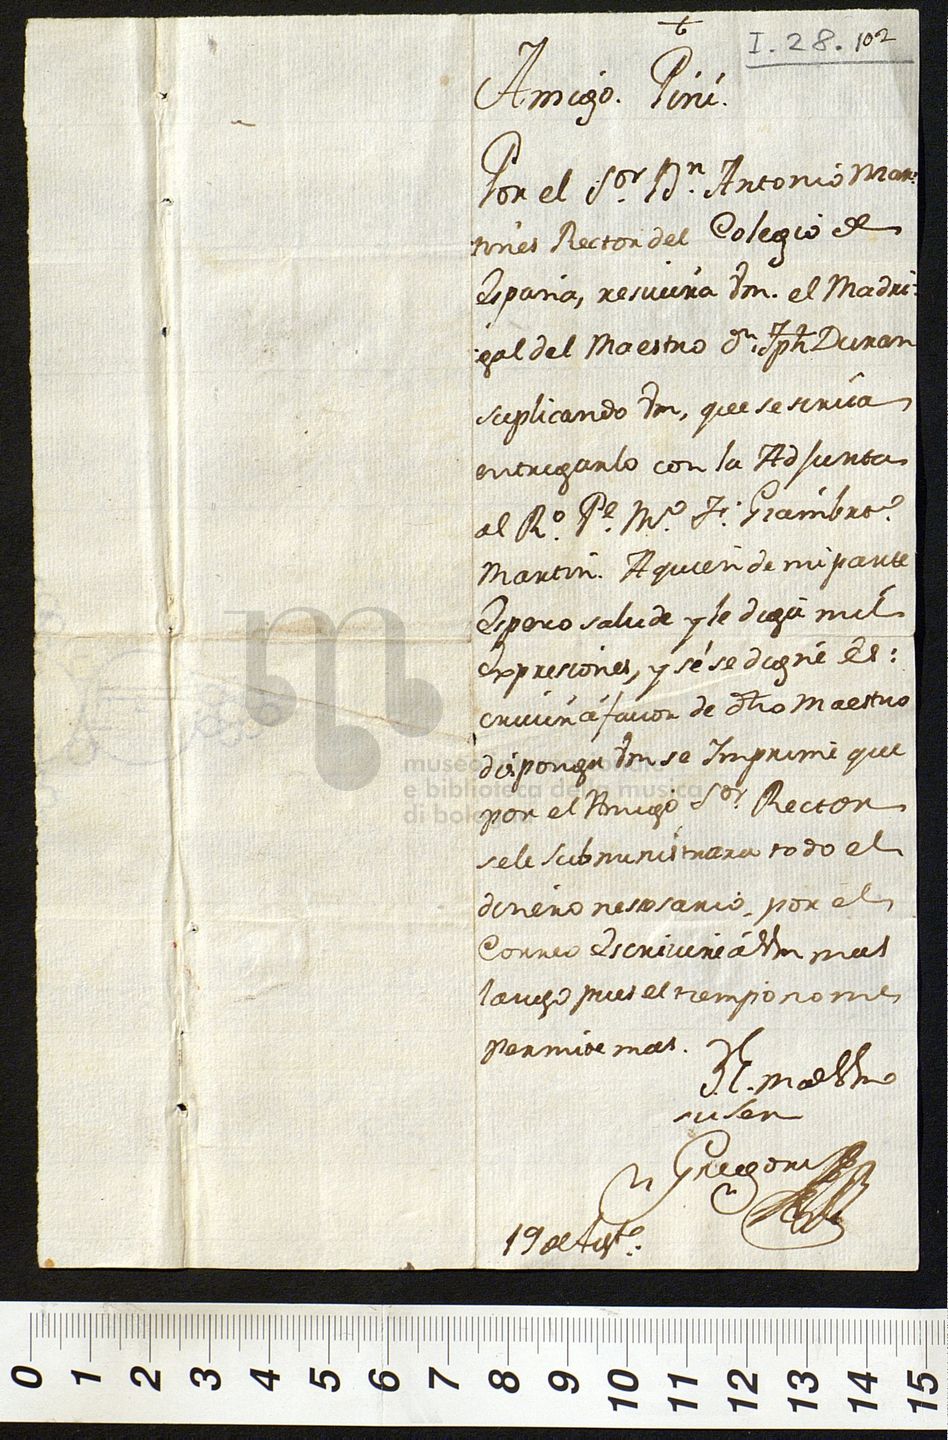 I.28.102
Amigo. Pini.
Por el Sor. Dn. Antonio Mar:
tines Rector del Colegio de
España, resivira Vm. el Madri:
gal del Maestro Dn. Jph Duran
suplicando Vm, que se sirva
entregarlo con la Adjunta
al Ro. Pe. Mo. Fr. Giambrto.
Martin. A quien de mi parte
Espero salude y le diga mil
Expresiones, y se se digne Es:
crivir á favor de dho Maestro
disponga Vm se Imprime que
por el Amigo Sor. Rector
sele subministrara todo el
dinero nesesario, por el
Correo Escrivire á Vm mas
largo pues el tiempo no me
permite mas.
su Ser
Gregori
19 de Agto.
museo internazionale
e biblioteca della musica
di bologna
0 1 2 3 4 5 6 7 8 9 10 11 12 13 14 15